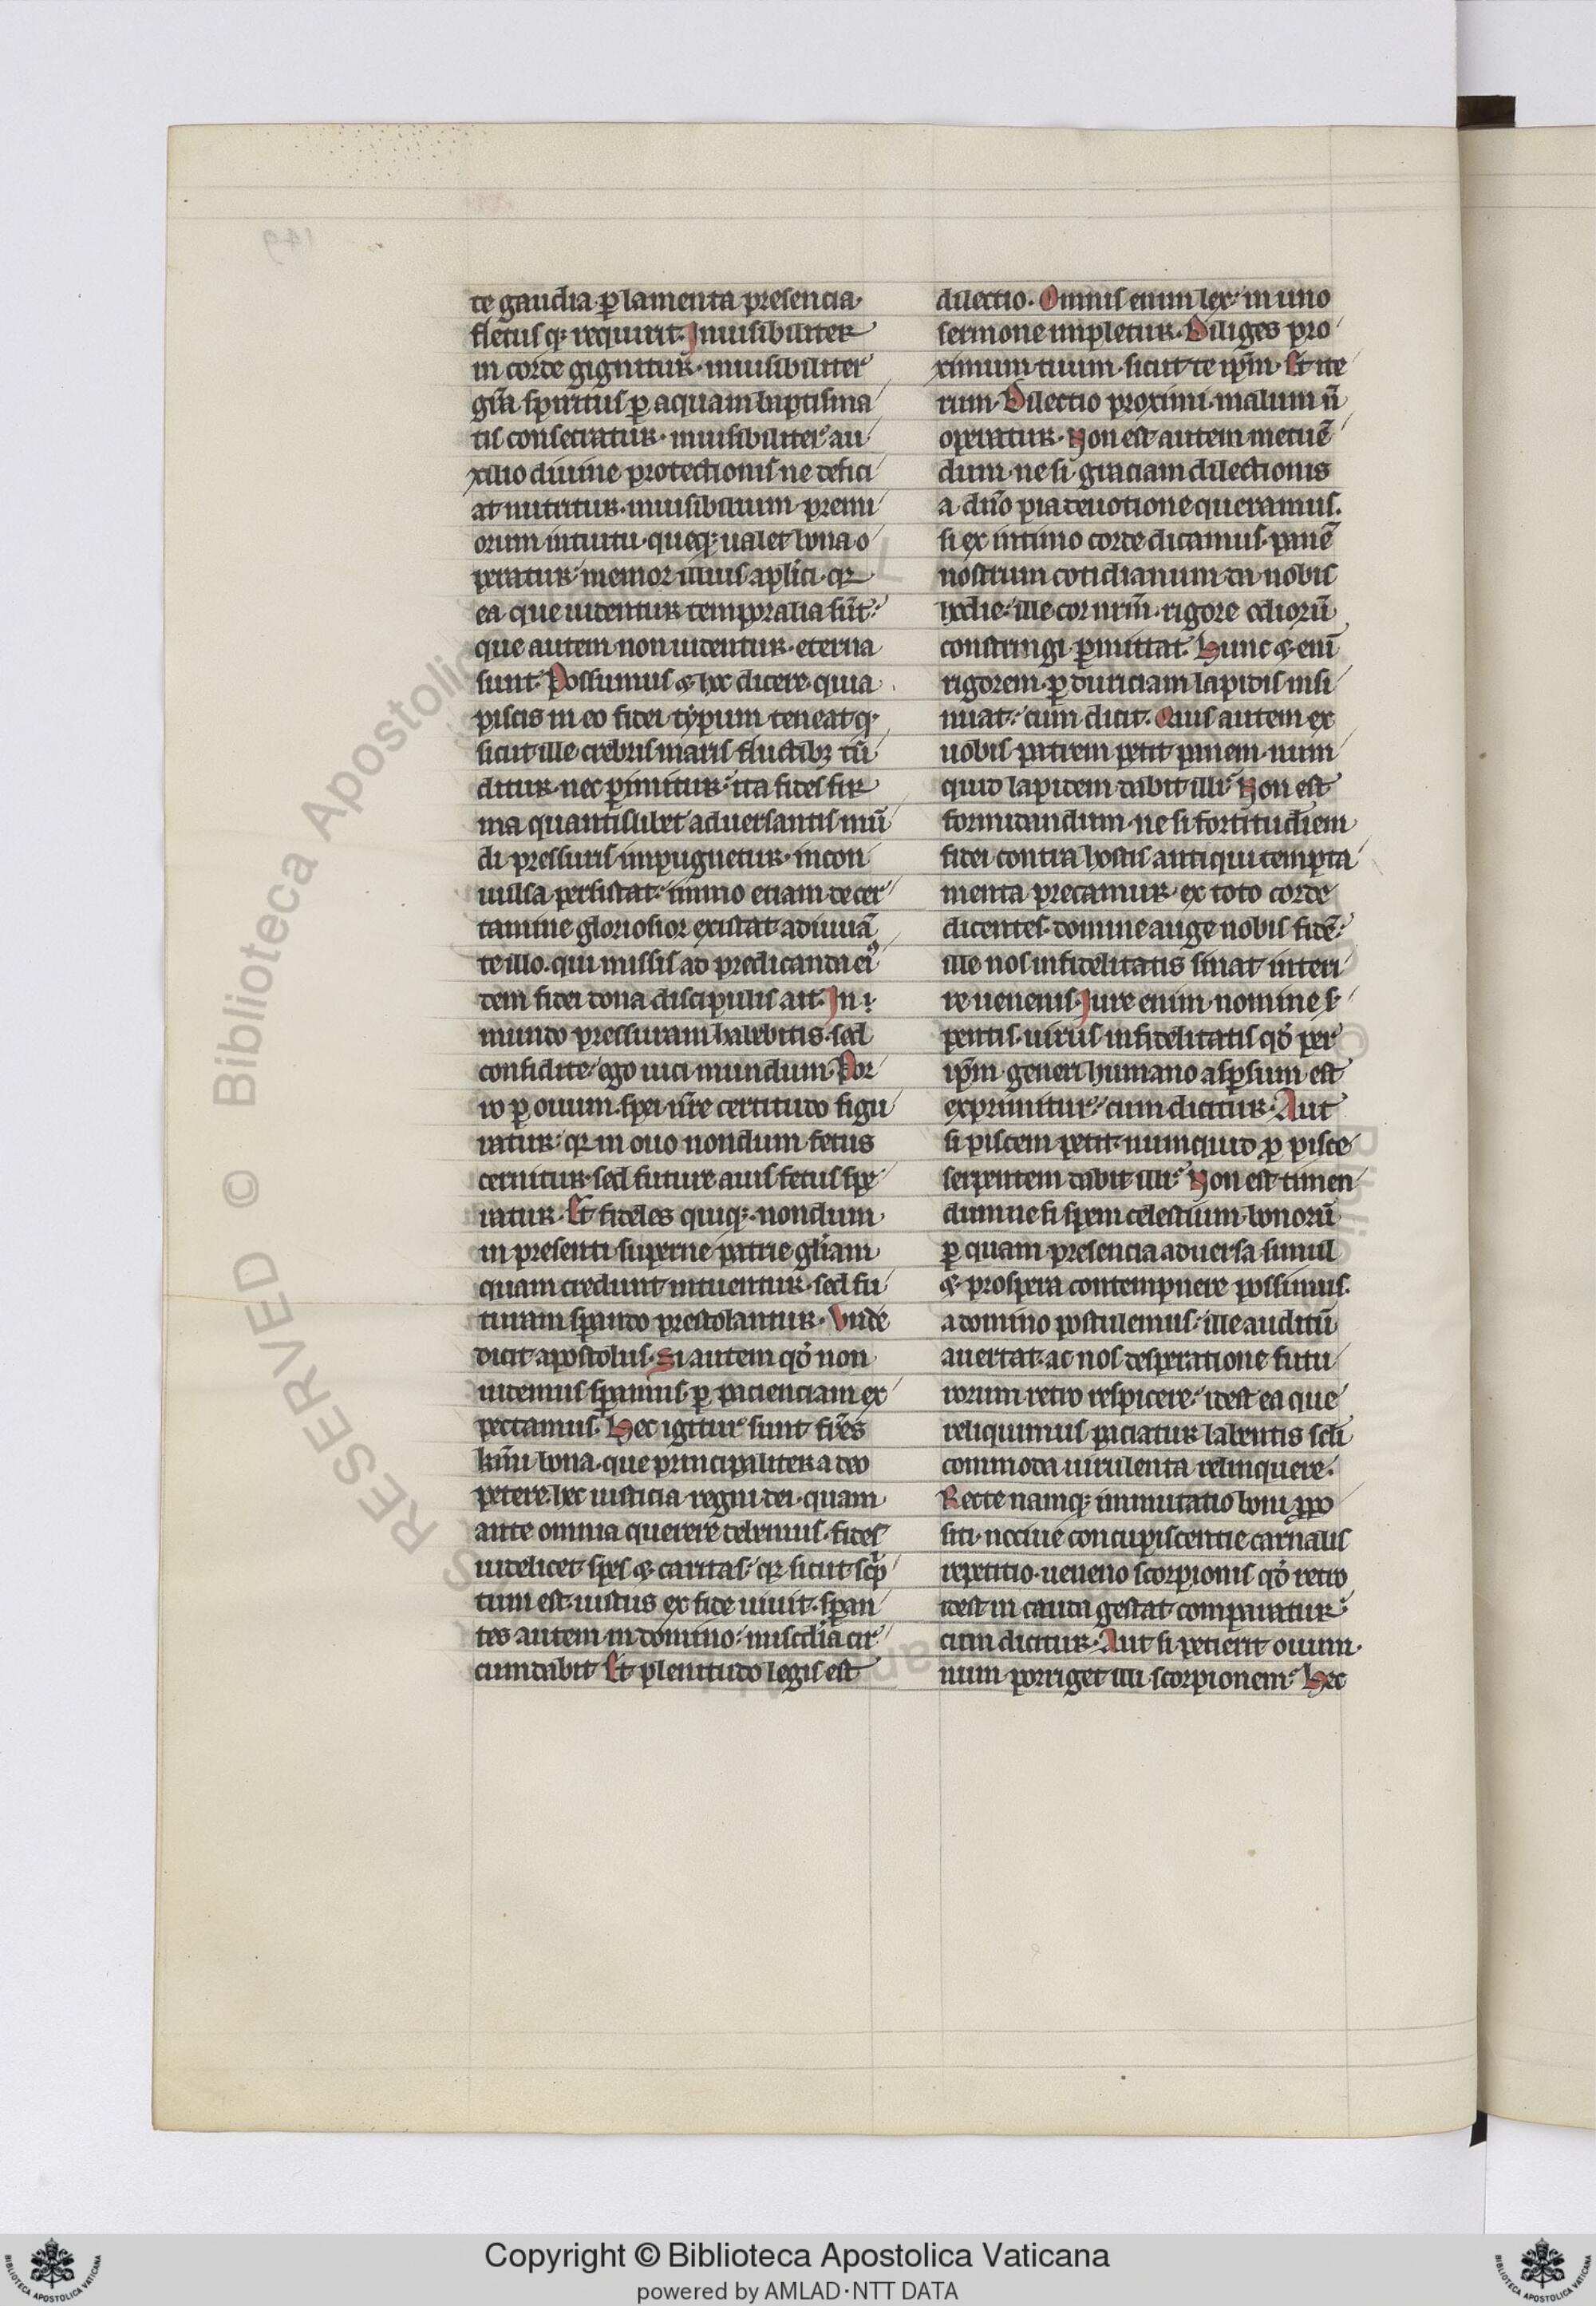 te gaudia ꝑ lamenta presencia·
fletusq; requirit. Inuisibiliter
in corde gignitur· inuisibiliter
gr̄a spiritus ꝑ aquam baptisma
tis consecratur· inuisibiliter au
xilio diuine protectionis ne defici
at nutritur· inuisibilium premi
orum intuitu· queq; ualet bona o
peratur· memor illius apl̓ici· qr
ea que uidentur temporalia sūt·
que autem non uidentur· eterna
sunt. Possumus ⁊ hoc dicere· quia
piscis in eo fidei typum teneat q·
sicut ille crebris maris fluctibꝫ tū
ditur· nec ꝑimitur· ita fides fir
ma quantislibet aduersantis mū
di pressuris impugnetur· incon
uulsa persistat· immo etiam de cer
tamine gloriosior existat adiuuā
te illo· qui missis ad predicanda ei9
dem fidei dona discipulis ait. In
mundo pressuram habebitis· sed
confidite· ego uici mundum. Por
ro ꝑ ouum· spei nr̄e certitudo figu
ratur· qr in ouo nondum fetus
cernitur· sed future auis fetus spe
ratur. Et fideles quiq; nondum
in presenti superne patrie gl̓iam
quam credunt intuentur· sed fu
turam sꝑando prestolantur. Vnde
dicit apostolus. Si autem qd̓ non
uidemus sꝑamus ꝑ pacienciam ex
pectamus. Hec igitur sunt fr̄es
km̄i bona· que principaliter a deo
petere· hec iusticia regni dei· quam
ante omnia querere debemus· fides
uidelicet· spes ⁊ caritas· qr sicut scͥp
tum est· iustus ex fide uiuit· sꝑan
tes autem in domino· miscd̓ia cir
cumdabit. Et plenitudo legis est
dilectio. Omnis enim lex· in uno
sermone impletur. Diliges pro
ximum tuum· sicut te ip̄m. Et ite
rum. Dilectio proximi· malum n̄
operatur. Non est autem metuē
dum· ne si graciam dilectionis
a dn̄o pia deuotione queramus·
si ex intimo corde dicamus· panē
nostrum cotidianum da nobis
hodie· ille cor nr̄m· rigore odiorū
constringi ꝑmittat. Hunc ⁊ enī
rigorem· ꝑ duriciam lapidis insi
nuat· cum dicit. Quis autem ex
uobis patrem petit panem· num
quid lapidem dabit illi? Non est
formidandum· ne si fortitudīem
fidei contra hostis antiqui tempta
menta precamur· ex toto corde
dicentes· domine auge nobis fidē·
ille nos infidelitatis sinat interi
re uenenis. Iure enim· nomine s̓
pentis· uirus infidelitatis qd̓ per
ip̄m generi humano asꝑsum est
exprimitur· cum dicitur. Aut
si piscem petit· numquid ꝓ pisce
serpentem dabit illi? Non est timen
dum ne si spem celestium bonorū
ꝑ quam presencia aduersa simul
⁊ prospera contempnere possimus·
a domino postulemus· ille auditū
auertat· ac nos desperatione futu
rorum retro respicere· idest ea que
reliquimus paciatur labentis sc̄li
commoda uirulenta relinquere·
Recte namq; immutatio boni ꝓpo
siti· nociue concupiscentie carnalis
repetitio· ueneno scorpionis qd̓ retro
idest in cauda gestat comparatur·
cum dicitur. Aut si petierit ouum·
num porriget illi scorpionem? Hec
Copyright © Biblioteca Apostolica Vaticana
powered by AMLAD·NTT DATA